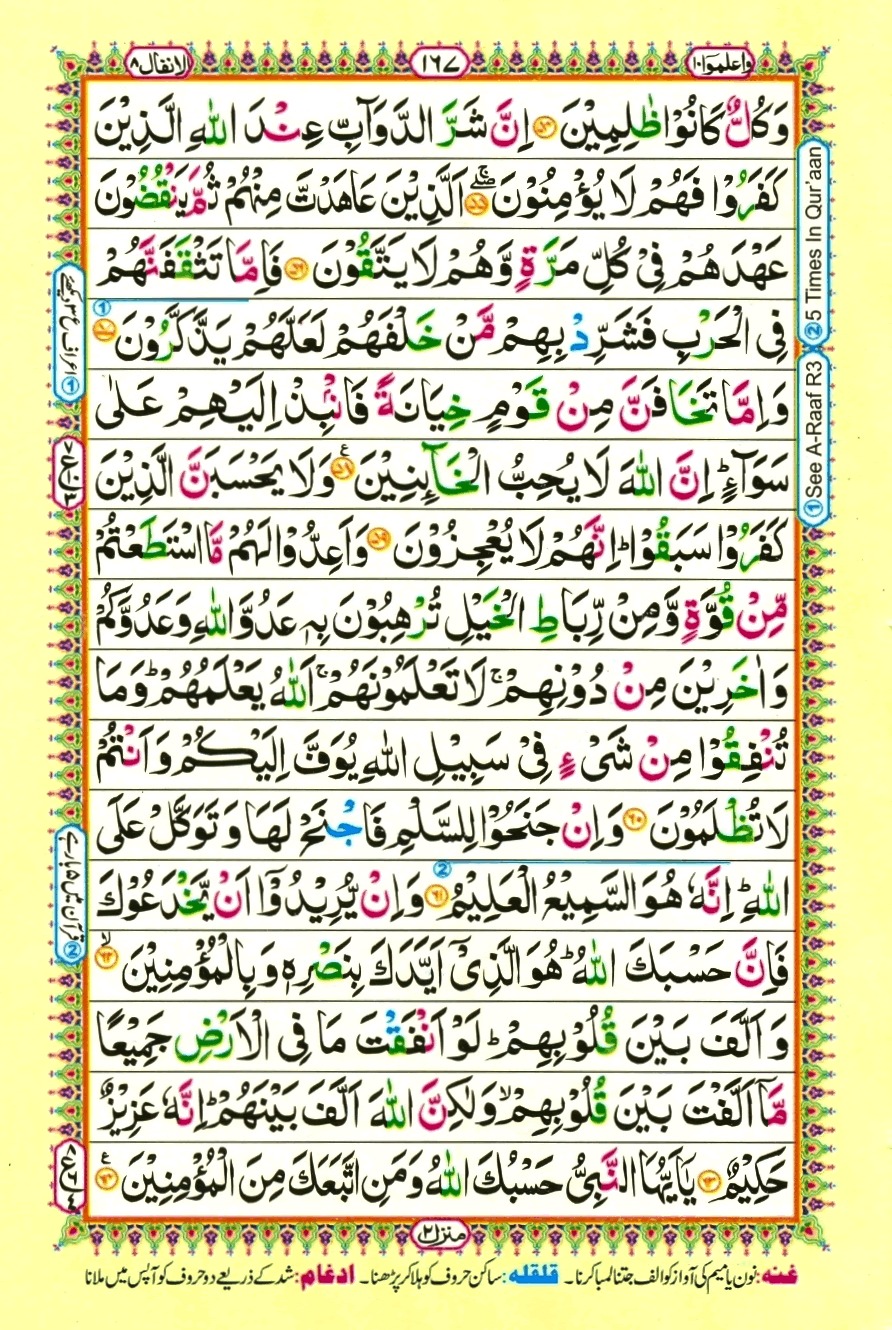 واعلموا ١٠
١٦٧
الانفال ٨
وَكُلٌّ كَانُوْا ظٰلِمِيْنَ ﴿٥٤﴾ اِنَّ شَرَّ الدَّوَآبِّ عِنْدَ اللّٰهِ الَّذِيْنَ
كَفَرُوْا فَهُمْ لَا يُؤْمِنُوْنَ ﴿٥٥﴾ۖۚ اَلَّذِيْنَ عَاهَدْتَّ مِنْهُمْ ثُمَّ يَنْقُضُوْنَ
عَهْدَهُمْ فِىْ كُلِّ مَرَّةٍ وَّهُمْ لَا يَتَّقُوْنَ ﴿٥٦﴾ فَاِمَّا تَثْقَفَنَّهُمْ
فِى الْحَرْبِ فَشَرِّدْ بِهِمْ مَّنْ خَلْفَهُمْ لَعَلَّهُمْ يَذَّكَّرُوْنَ ﴿٥٧﴾
وَاِمَّا تَخَافَنَّ مِنْ قَوْمٍ خِيَانَةً فَانْۢبِذْ اِلَيْهِمْ عَلٰى
سَوَآءٍؕ اِنَّ اللّٰهَ لَا يُحِبُّ الْخَآئِنِيْنَ ﴿٥٨﴾ وَلَا يَحْسَبَنَّ الَّذِيْنَ
كَفَرُوْا سَبَقُوْاؕ اِنَّهُمْ لَا يُعْجِزُوْنَ ﴿٥٩﴾ وَاَعِدُّوْا لَهُمْ مَّا اسْتَطَعْتُمْ
مِّنْ قُوَّةٍ وَّمِنْ رِّبَاطِ الْخَيْلِ تُرْهِبُوْنَ بِهٖ عَدُوَّ اللّٰهِ وَعَدُوَّكُمْ
وَاٰخَرِيْنَ مِنْ دُوْنِهِمْۚ لَا تَعْلَمُوْنَهُمْۚ اَللّٰهُ يَعْلَمُهُمْؕ وَمَا
تُنْفِقُوْا مِنْ شَىْءٍ فِىْ سَبِيْلِ اللّٰهِ يُوَفَّ اِلَيْكُمْ وَاَنْتُمْ
لَا تُظْلَمُوْنَ ﴿٦٠﴾ وَاِنْ جَنَحُوْا لِلسَّلْمِ فَاجْنَحْ لَهَا وَتَوَكَّلْ عَلَى
اللّٰهِؕ اِنَّهٗ هُوَ السَّمِيْعُ الْعَلِيْمُ ﴿٦١﴾ وَاِنْ يُّرِيْدُوْٓا اَنْ يَّخْدَعُوْكَ
فَاِنَّ حَسْبَكَ اللّٰهُؕ هُوَ الَّذِىْٓ اَيَّدَكَ بِنَصْرِهٖ وَبِالْمُؤْمِنِيْنَ ﴿٦٢﴾ۙ
وَاَلَّفَ بَيْنَ قُلُوْبِهِمْؕ لَوْ اَنْفَقْتَ مَا فِى الْاَرْضِ جَمِيْعًا
مَّاۤ اَلَّفْتَ بَيْنَ قُلُوْبِهِمْۙ وَلٰكِنَّ اللّٰهَ اَلَّفَ بَيْنَهُمْؕ اِنَّهٗ عَزِيْزٌ
حَكِيْمٌ ﴿٦٣﴾ يٰۤاَيُّهَا النَّبِىُّ حَسْبُكَ اللّٰهُ وَمَنِ اتَّبَعَكَ مِنَ الْمُؤْمِنِيْنَ ﴿٦٤﴾
② 5 Times In Qur'aan
① See A-Raaf R3
① اعراف ع ٣ دیکھئے
② قرآن میں ٥ بارہے
منزل ٢
غنہ: نون یا میم کی آواز کو الف جتنا لمبا کرنا۔ قلقلہ: ساکن حروف کو ہلا کر پڑھنا۔ ادغام: شد کے ذریعے دو حروف کو آپس میں ملانا